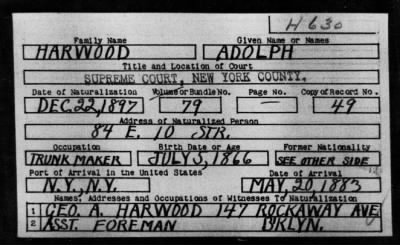 H 630
Family Name Given Name or Names
HARWOOD ADOLPH
Title and Location of Court
SUPREME COURT, NEW YORK COUNTY.
Date of Naturalization Volume or Bundle No. Page No. Copy of Record No.
DEC. 22, 1897 79 — 49
Address of Naturalized Person
84 E. 10 STR.
Occupation Birth Date or Age Former Nationality
TRUNK MAKER JULY 3, 1866 SEE OTHER SIDE
Port of Arrival in the United States Date of Arrival
N.Y., N.Y. MAY, 20, 1883
Names, Addresses and Occupations of Witnesses To Naturalization
1 GEO. A. HARWOOD 147 ROCKAWAY AVE
2 ASST. FOREMAN B'KLYN.